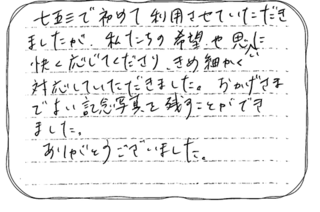 七五三で初めて利用させていただき
ましたが 私たちの希望や思いに
快く応じてくださり、きめ細かく
対応していただきました。おかげさま
でよい記念写真を残すことができ
ました。
ありがとうございました。